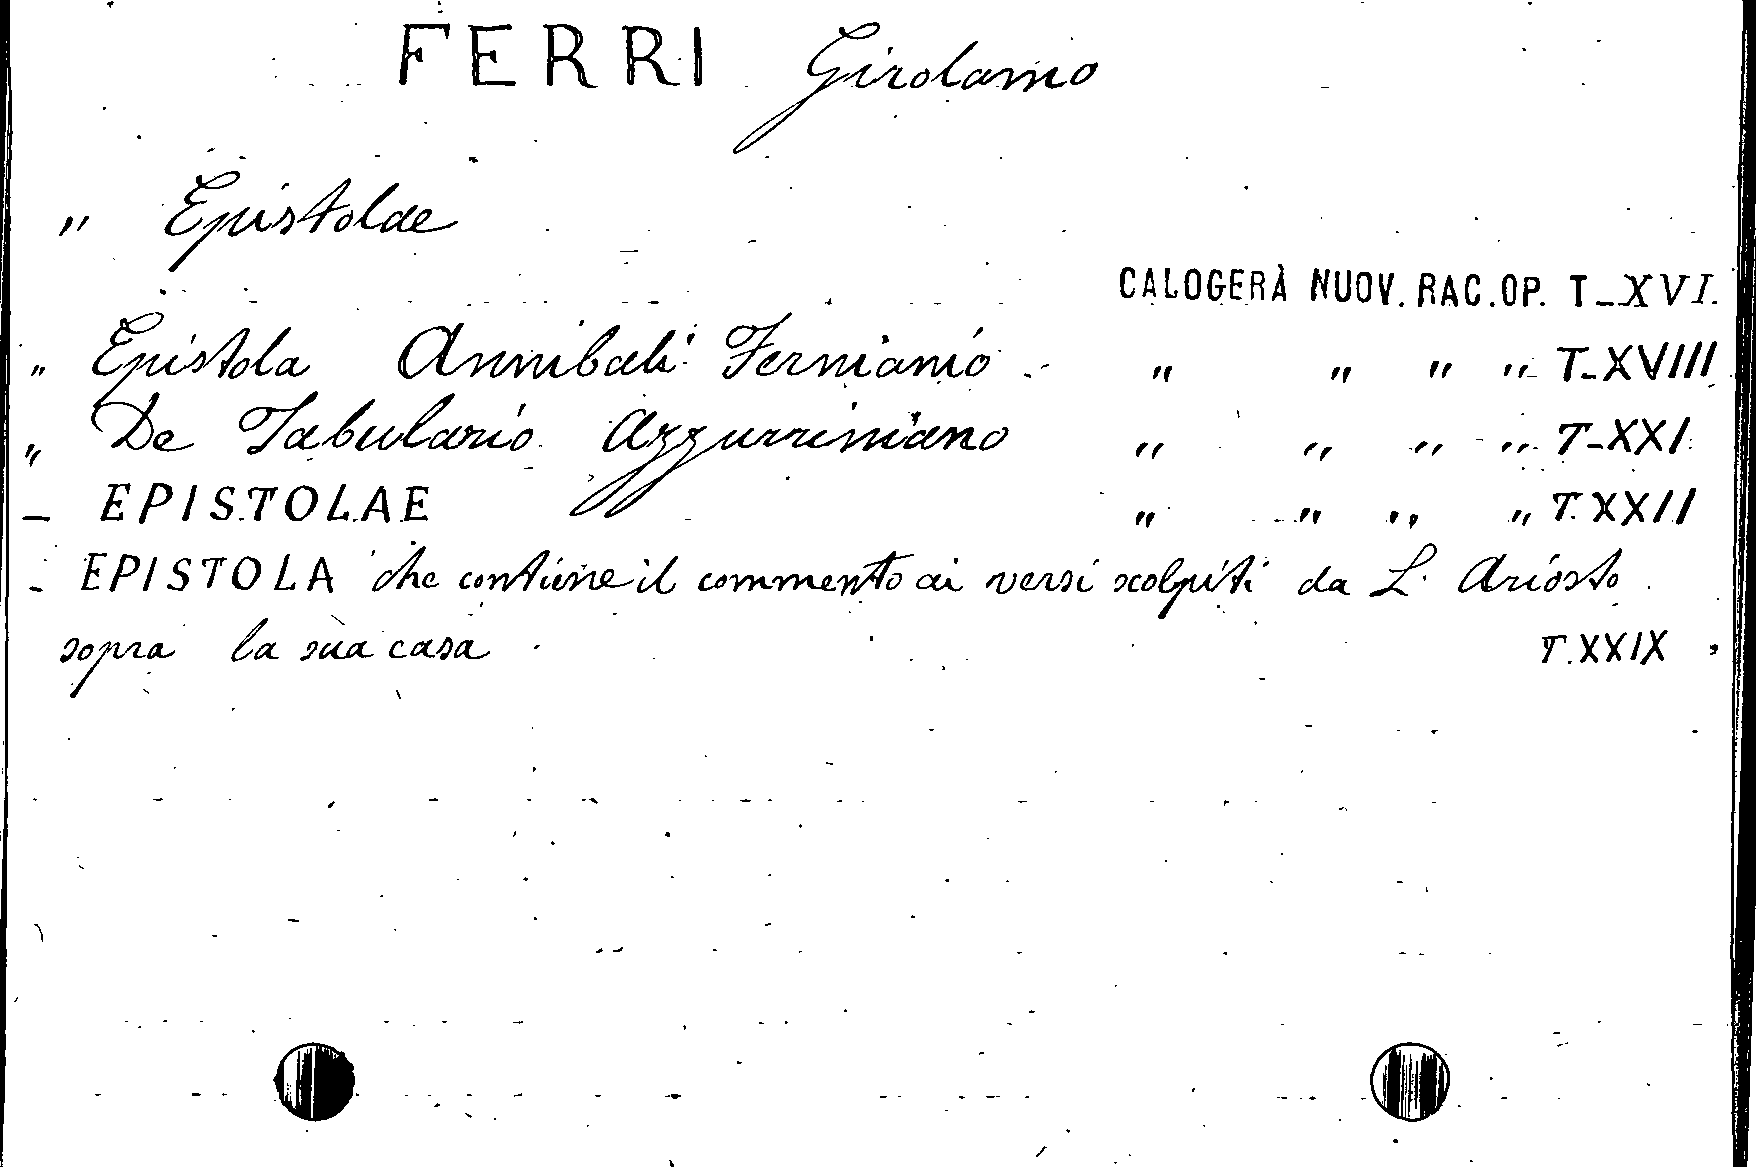 FERRI Girolamo
" Epistolae
CALOGERÀ NUOV. RAC. OP. T_XVI.
" Epistola Annibali Fernianio " " " " T_XVIII
" De Tabulario Azzurriniano " " " " T_XXI
_ EPISTOLAE " " " " T. XXII
- EPISTOLA che contiene il commento ai versi scolpiti da L. Ariosto
sopra la sua casa T. XXIX